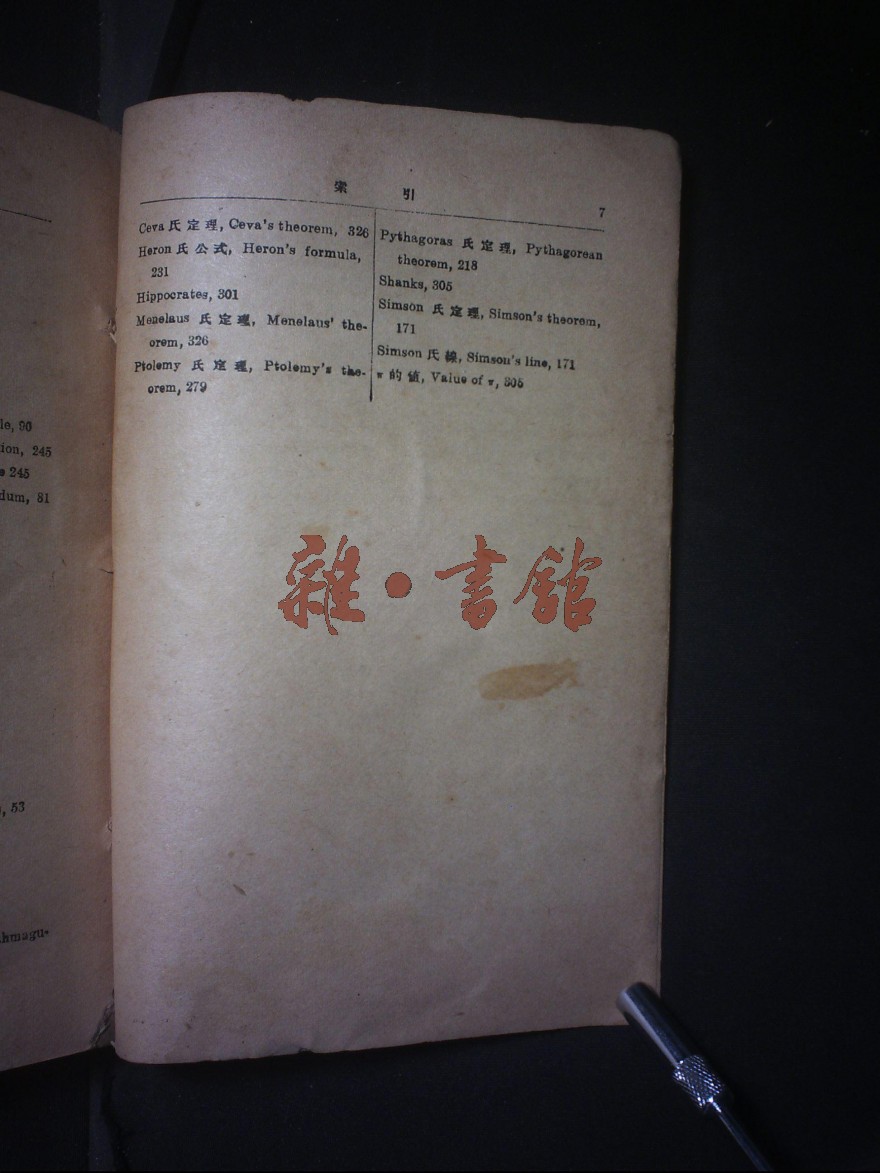 le, 90
ion, 245
e 245
dum, 81
, 53
hmagu-
索 引
7
Ceva 氏定理, Ceva's theorem, 326
Heron 氏公式, Heron's formula,
231
Hippocrates, 301
Menelaus 氏定理, Menelaus' the-
orem, 326
Ptolemy 氏定理, Ptolemy's the-
orem, 279
Pythagoras 氏定理, Pythagorean
theorem, 218
Shanks, 305
Simson 氏定理, Simson's theorem,
171
Simson 氏線, Simson's line, 171
π 的値, Value of π, 305
雜·書館